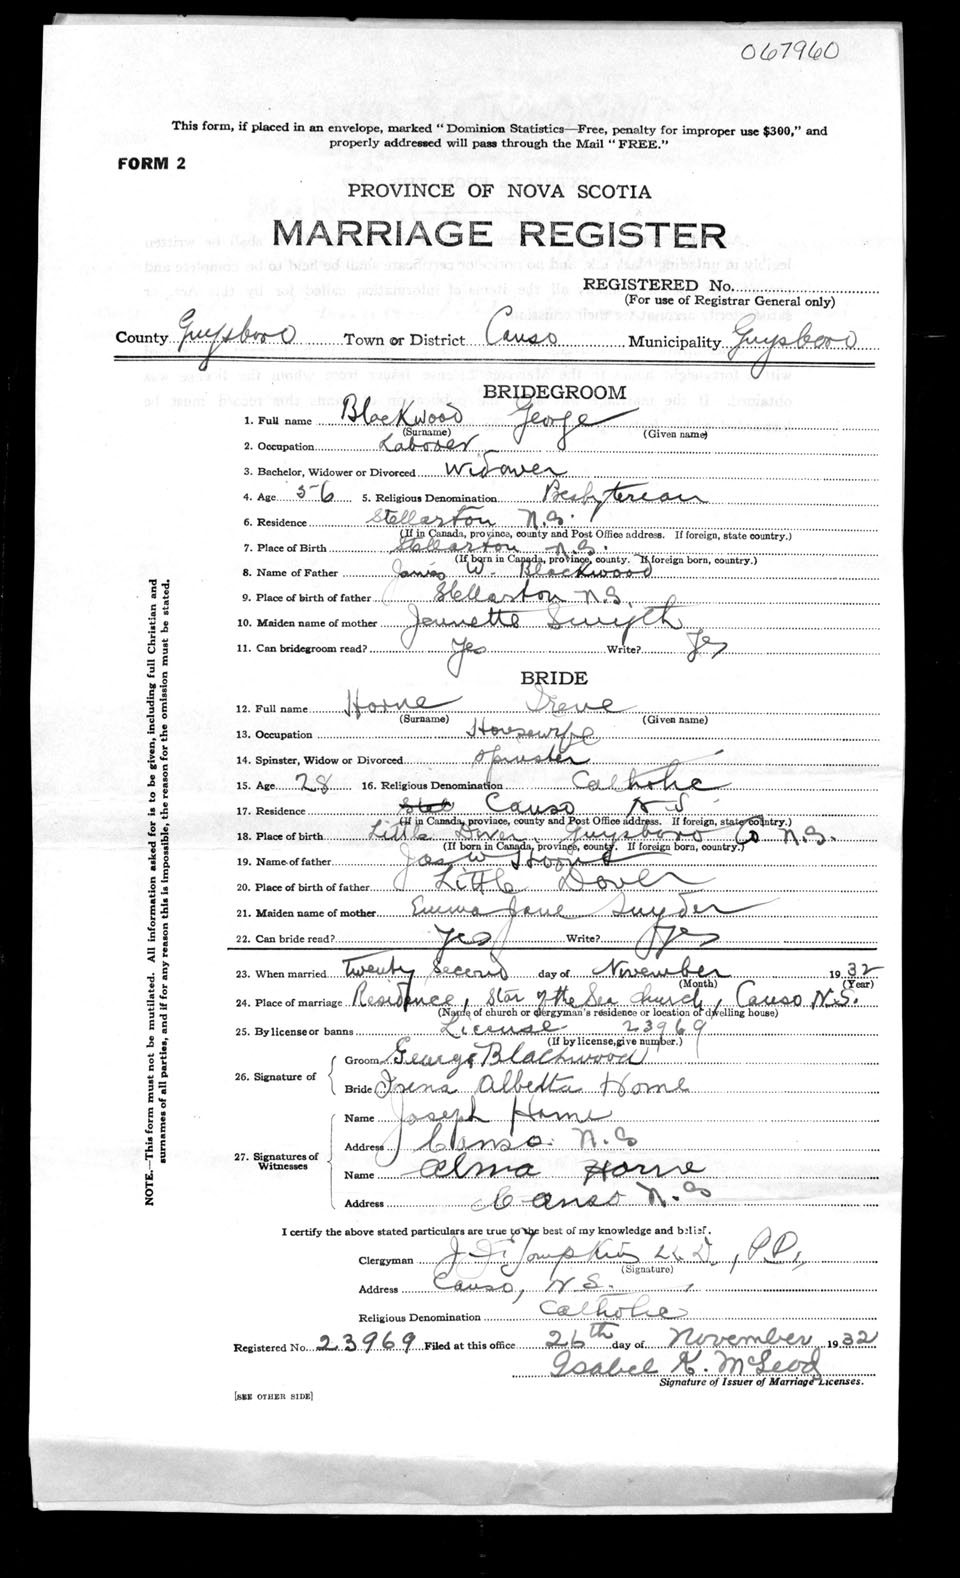 067960
This form, if placed in an envelope, marked "Dominion Statistics—Free, penalty for improper use $300," and
properly addressed will pass through the Mail "FREE."
FORM 2
PROVINCE OF NOVA SCOTIA
MARRIAGE REGISTER
REGISTERED No.
(For use of Registrar General only)
County Guysboro Town or District Canso Municipality Guysboro
BRIDEGROOM
1. Full name Blackwood George
(Surname) (Given name)
2. Occupation Laborer
3. Bachelor, Widower or Divorced Widower
4. Age 56 5. Religious Denomination Presbyterian
6. Residence Stellarton N.S.
(If in Canada, province, county and Post Office address. If foreign, state country.)
7. Place of Birth Stellarton N.S.
(If born in Canada, province, county. If foreign born, country.)
8. Name of Father James W. Blackwood
9. Place of birth of father Stellarton N.S.
10. Maiden name of mother Jennette Smyth
11. Can bridegroom read? Yes Write? Yes
BRIDE
12. Full name Horne Irene
(Surname) (Given name)
13. Occupation Housewife
14. Spinster, Widow or Divorced Spinster
15. Age 28 16. Religious Denomination Catholic
17. Residence Canso N.S.
(If in Canada, province, county and Post Office address. If foreign, state country.)
18. Place of birth Little Dover, Guysboro Co N.S.
(If born in Canada, province, county. If foreign born, country.)
19. Name of father Jas W Horne
20. Place of birth of father Little Dover
21. Maiden name of mother Emma Jane Snyder
22. Can bride read? Yes Write? Yes
23. When married Twenty Second day of November 1932
(Month) (Year)
24. Place of marriage Residence, Star of the Sea Church, Canso N.S.
(Name of church or clergyman's residence or location of dwelling house)
25. By license or banns License 23969
(If by license, give number.)
26. Signature of
Groom George Blackwood
Bride Irene Alberta Horne
27. Signatures of Witnesses
Name Joseph Horne
Address Canso N.S
Name Alma Horne
Address Canso N.S
I certify the above stated particulars are true to the best of my knowledge and belief.
Clergyman J. J. Tompkins LL.D., P.P.,
(Signature)
Address Canso, N.S.
Religious Denomination Catholic
Registered No. 23969 Filed at this office 26th day of November 1932
Isabel K. McLeod
Signature of Issuer of Marriage Licenses.
[SEE OTHER SIDE]
NOTE.—This form must not be mutilated. All information asked for is to be given, including full Christian and
surnames of all parties, and if for any reason this is impossible, the reason for the omission must be stated.